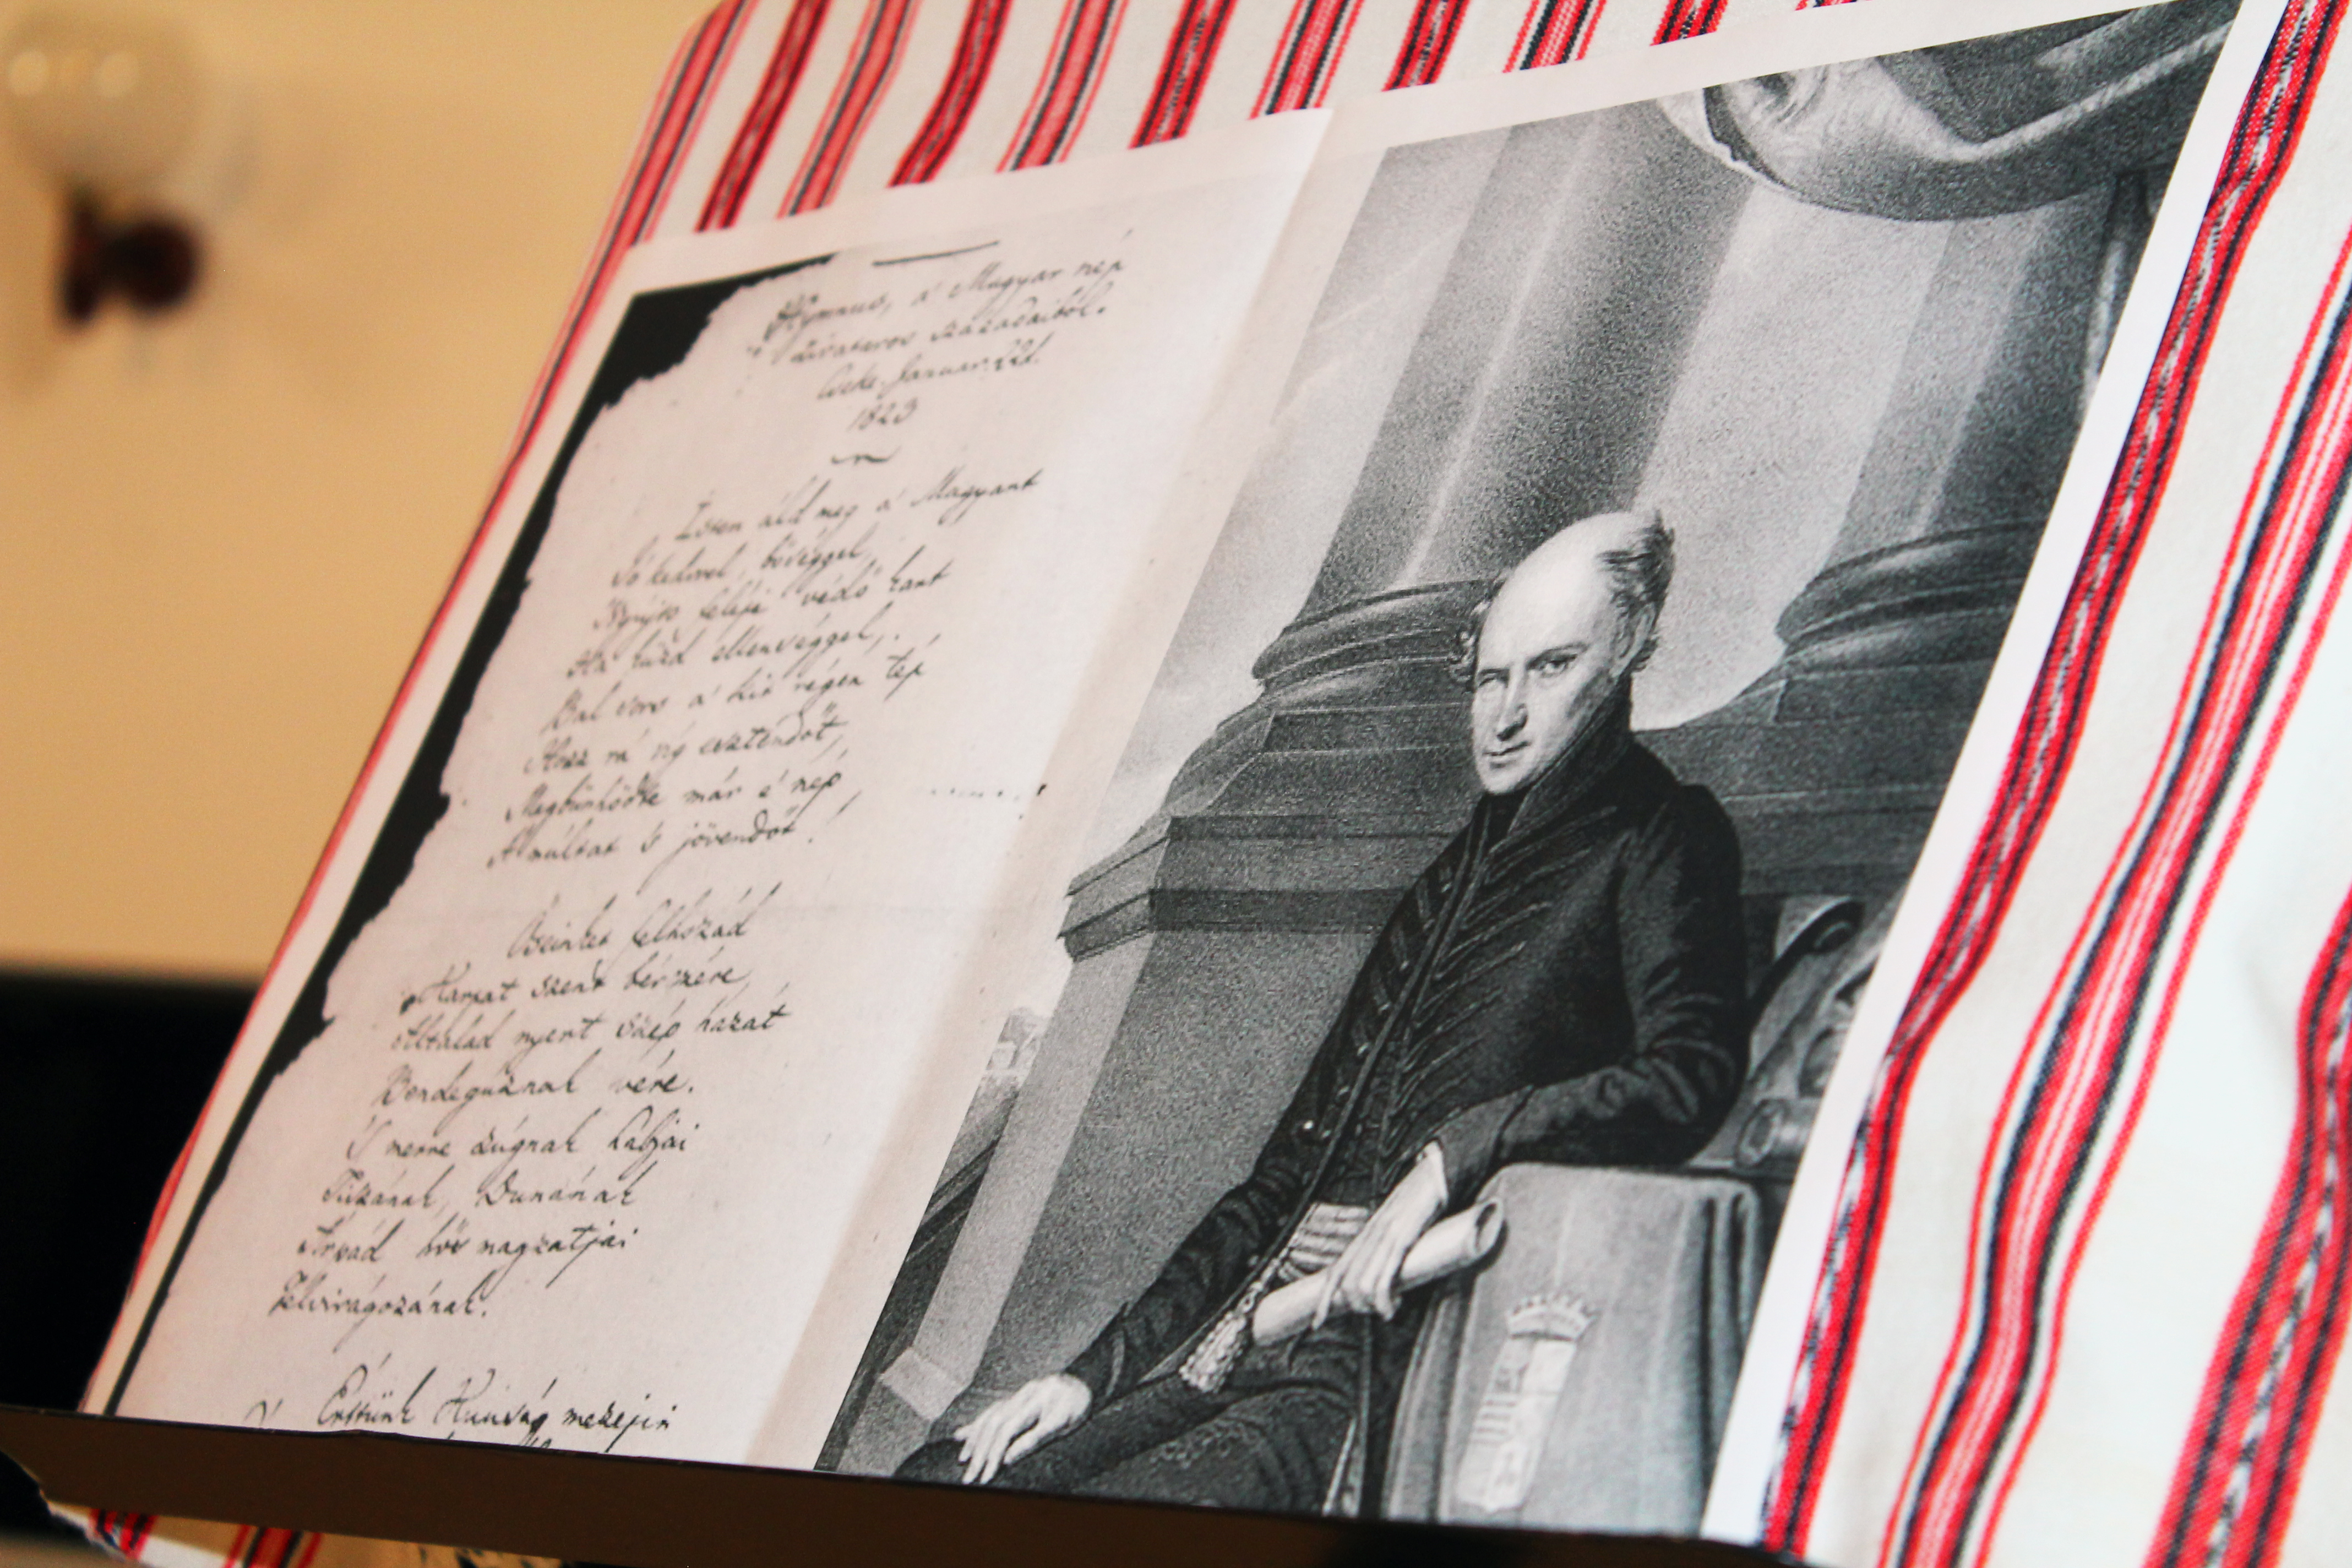 Hymnus, a' Magyar nép
zivataros századaiból.
Cseke Januar. 22d.
1823
Isten áld meg a' Magyart
Jó kedvvel, bőséggel,
Nyújts feléje védő kart
Ha küzd ellenséggel,
Bal sors a' kit régen tép
Hozz rá víg esztendőt,
Megbünhödte már e' nép
A' múltat 's jövendőt!
Őseinket felhozád
Kárpát szent bérczére,
Általad nyert szép hazát
Bendegúznak vére.
'S merre zúgnak habjai
Tiszának, Dunának
Árpád hős magzatjai
Felvirágozának.
Értünk Kunság mezejin